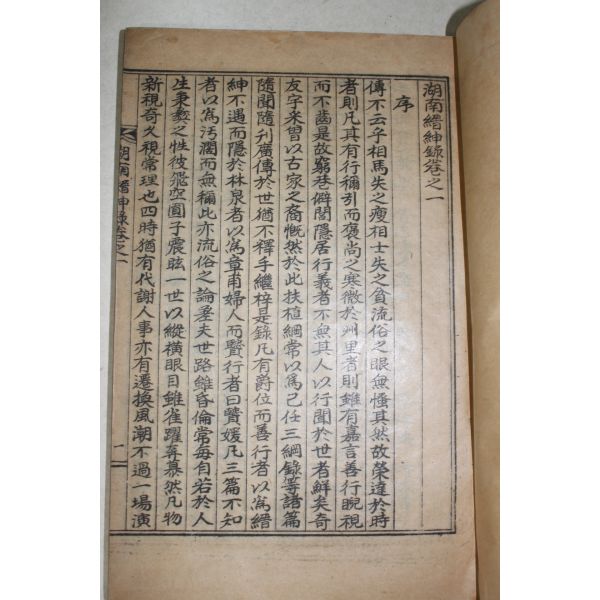 湖南縉紳錄卷之一
序
傳不云乎相馬失之瘦相士失之貧流俗之眼無恠其然故榮達於時
者則凡其有行稱引而褒尚之寒微於州里者則雖有嘉言善行睨視
而不齒是故窮巷僻閭隱居行義者不無其人以行聞於世者鮮矣奇
友宇来甞以古家之裔慨然於此扶植綱常以爲己任三綱錄等諸篇
隨聞隨刊廣傳於世猶不釋手繼梓是錄凡有爵位而善行者以爲縉
紳不遇而隱於林泉者以爲章甫婦人而賢行者曰賢媛凡三篇不知
者以爲汚濶而無稱此亦流俗之論矣夫世路雖昏倫常毎自若於人
生秉彜之性彼飛空圓子震眩一世以縱橫眼目雖雀躍莽慕然凡物
新視奇久視常理也四時猶有代謝人事亦有遷換風潮不過一場演
湖南縉紳錄卷之一
一